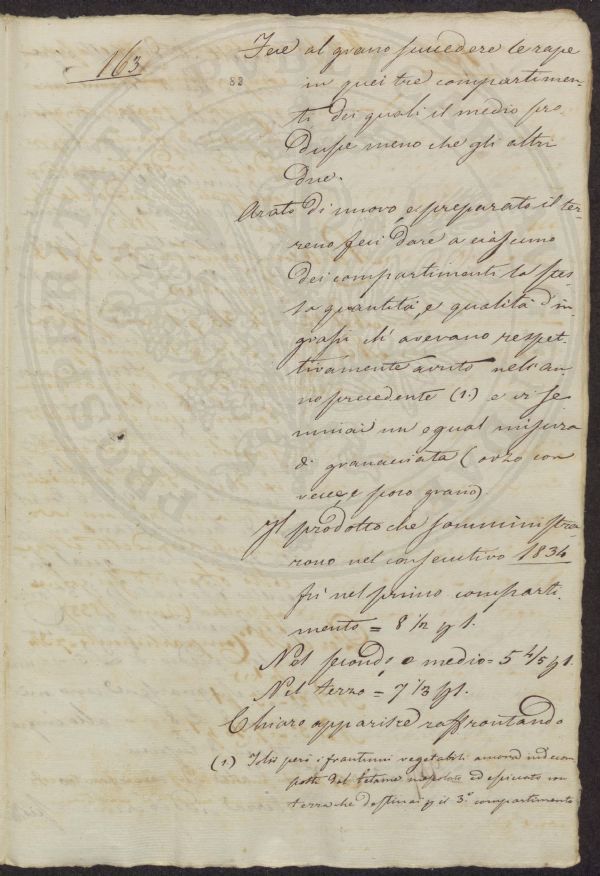 163
83
Feci al grano succedere le rape
in quei tre compartimen-
ti dei quali il medio pro
dusse meno che gli altri
due.
Arato di nuovo, e preparato il ter-
reno feci dare a ciascuno
dei compartimenti la stes-
sa quantità, e qualità d'in-
grassi ch'avevano respet-
tivamente avuto nell'an
no precedente (1.) e vi se
minai un egual misura
di granacciata (orzo con
vecce, e poco grano)
Il prodotto che somministra-
rono nel consecutivo 1834
fu nel primo comparti-
mento = 8 1/2 p 1.
Nel secondo o medio = 5 4/5 p 1.
Nel terzo = 7 1/3 p 1.
Chiaro apparisce raffrontando
(1) però i frantumi vegetabili ancora indecom
posti dal letame ed con
terra che destinai p il 3.° compartimento
PROSPERITATI